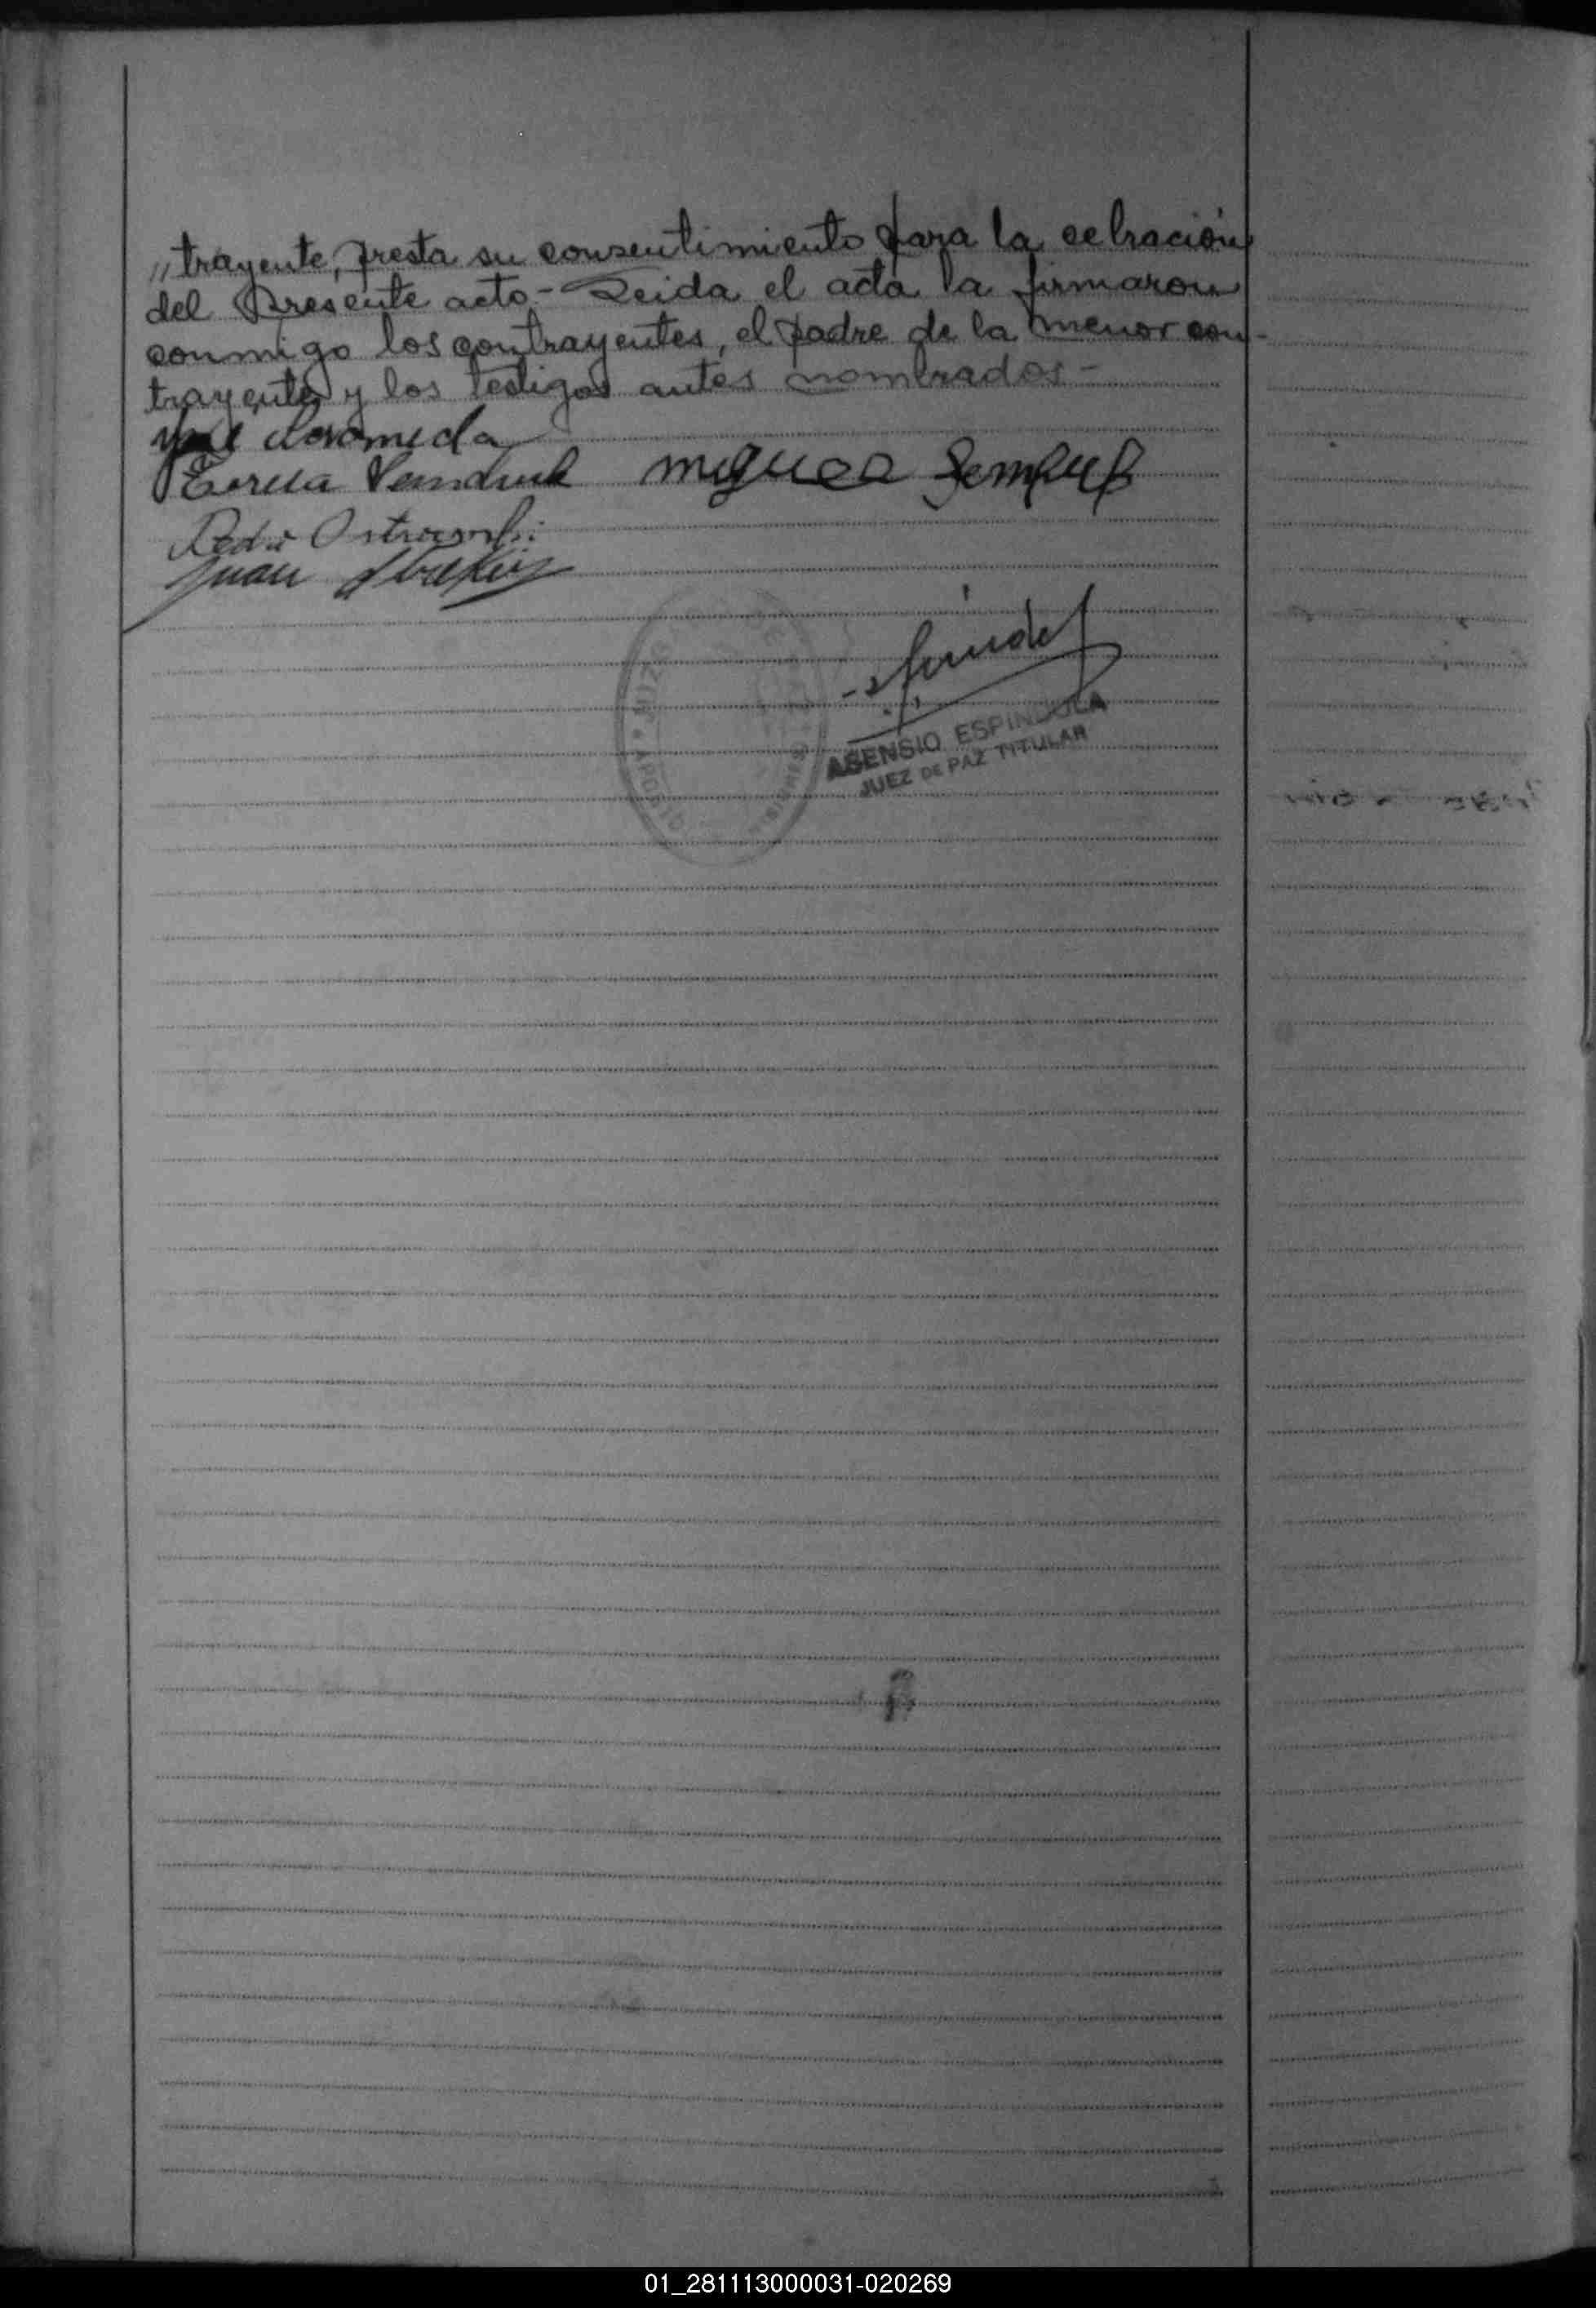 „trayente, presta su consentimiento para la celbración
del presente acto - Leida el acta la firmaron
conmigo los contrayentes, el padre de la menor con-
trayente y los testigos antes nombrados -
Miguel
Pedro
Juan
JUZG DE
APOSTO MISIONES
ASENSIO ESPINDOLA
JUEZ DE PAZ TITULAR
01_281113000031-020269